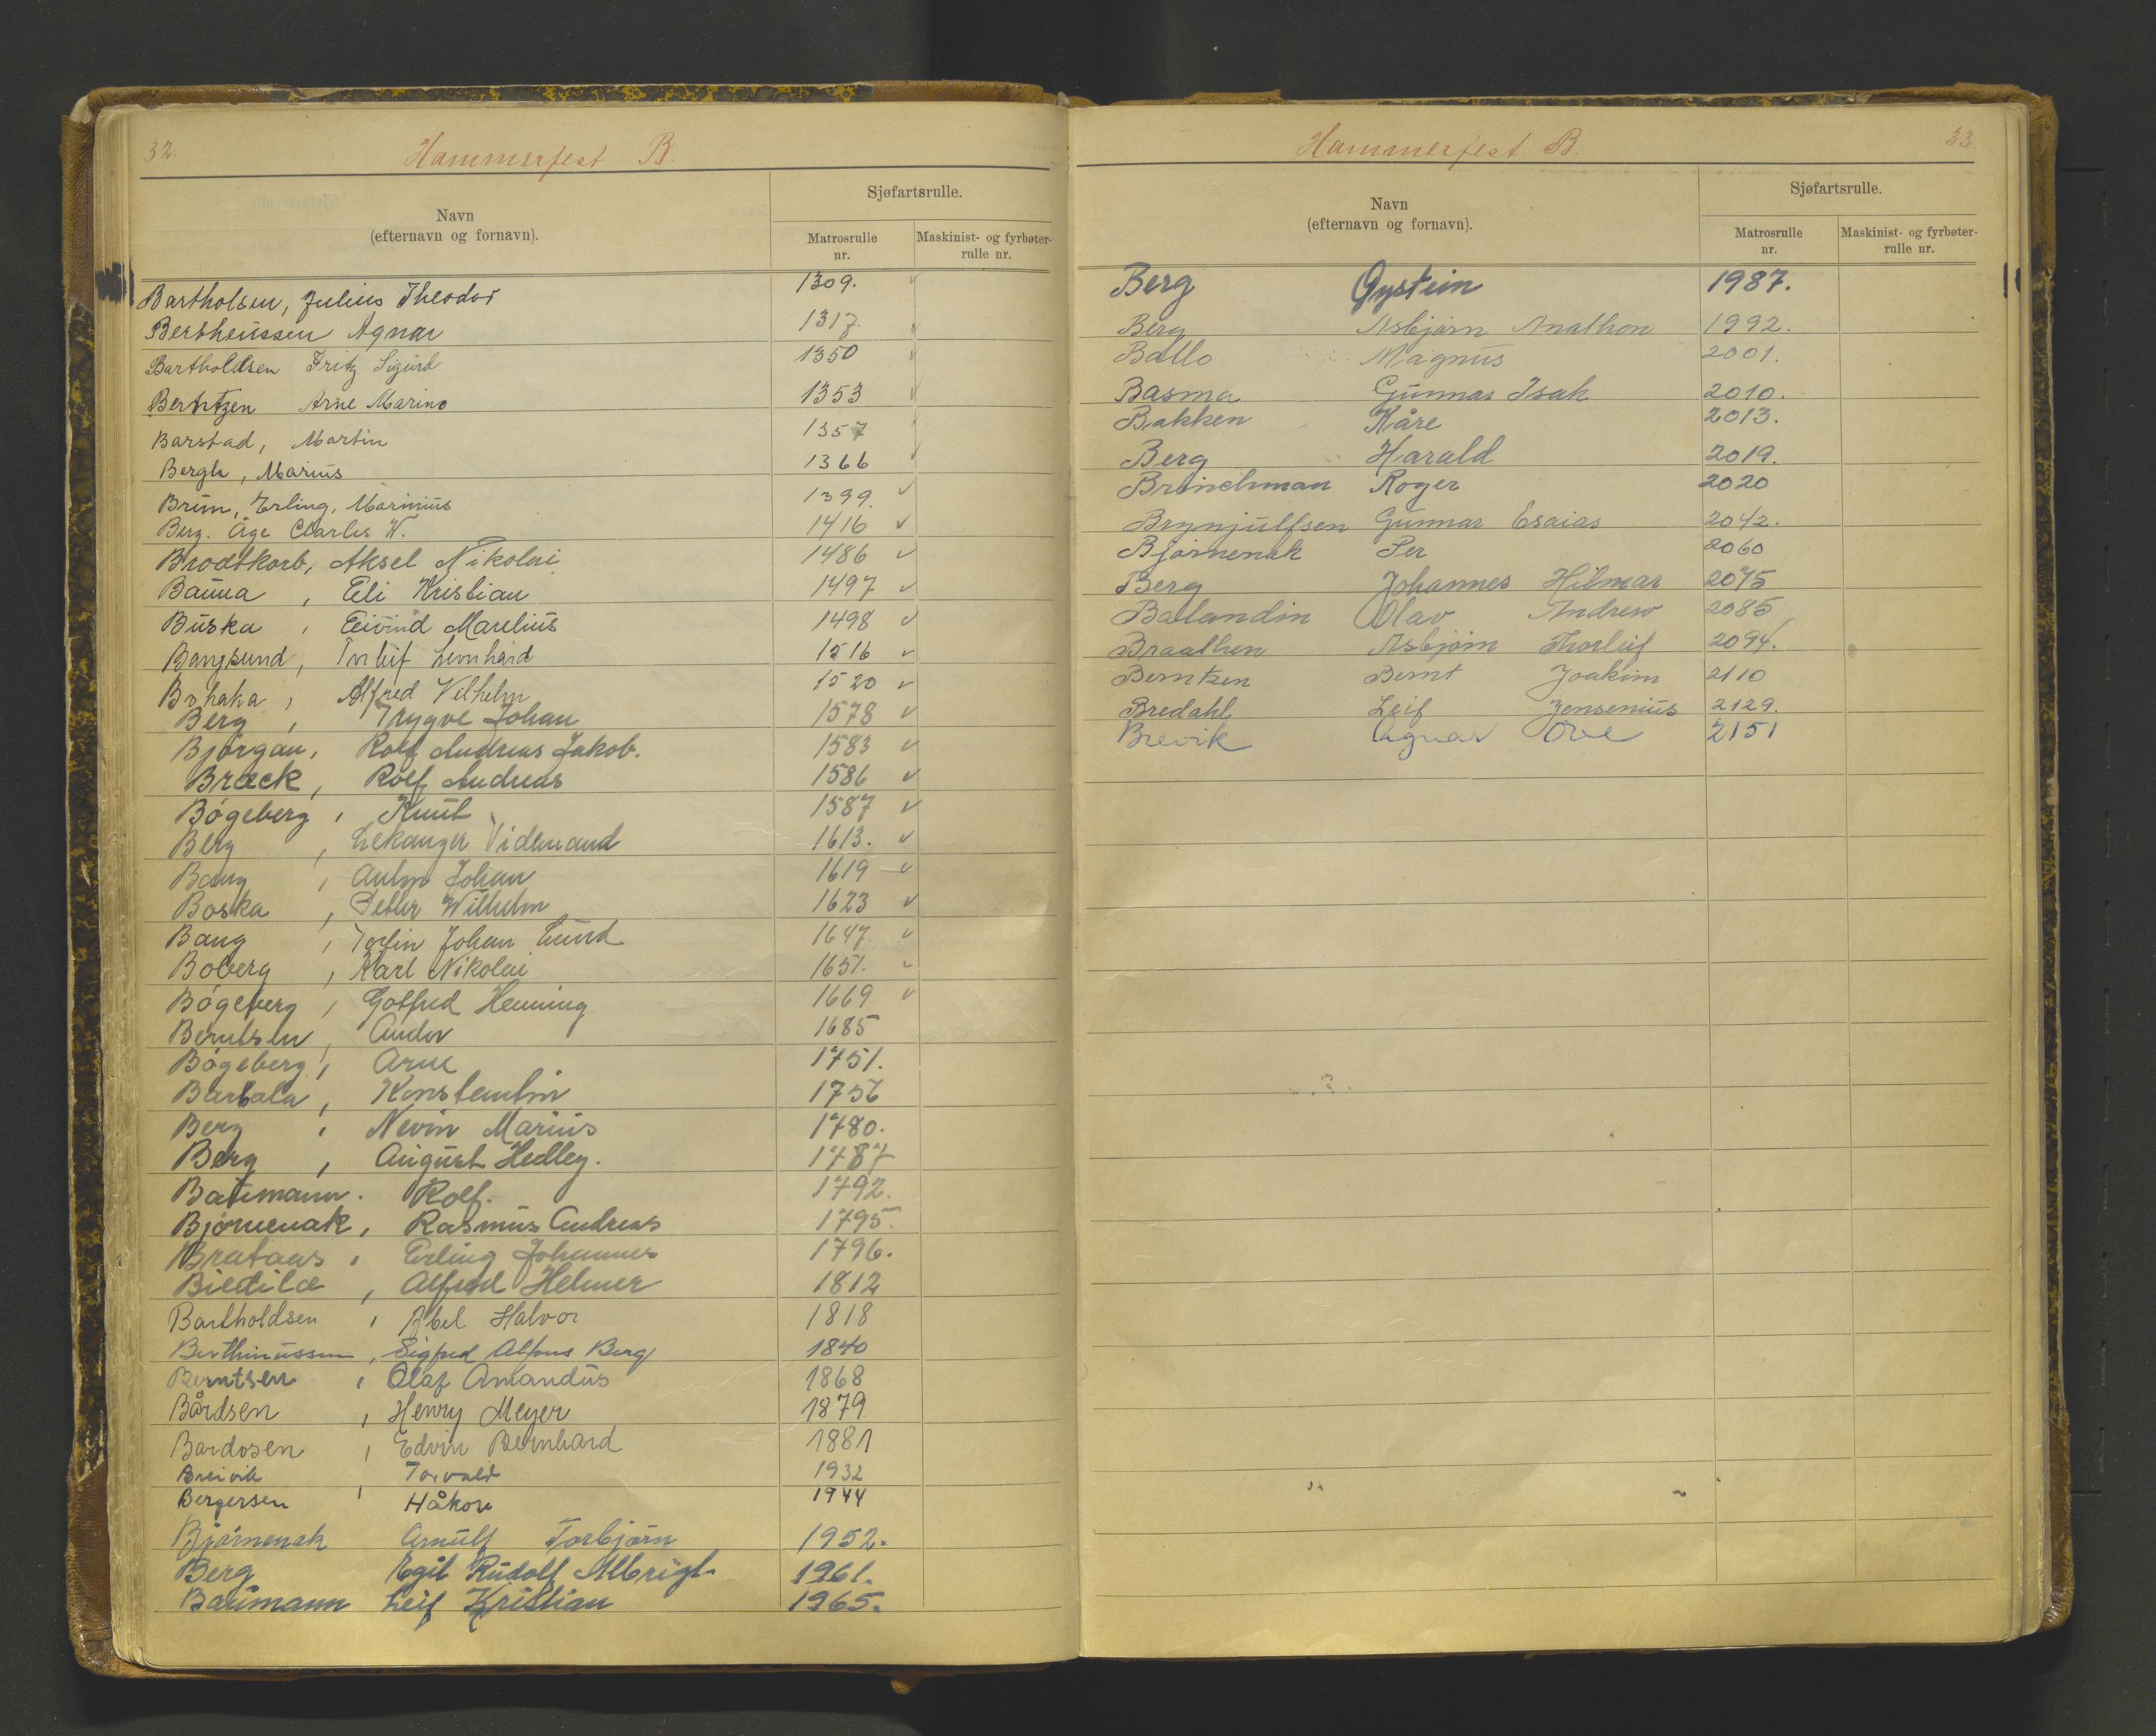 32.
Hammerfest B.
Navn
(efternavn og fornavn).
Sjøfartsrulle.
Matrosrulle
nr.
Maskinist- og fyrbøter-
rulle nr.
Bartholsen, Julius Theodor 1309. ✓
Bertheussen Agnar 1317. ✓
Bartholdsen Fritz Sigurd 1350 ✓
Berntzen Arne Marino 1353 ✓
Barstad, Martin 1357
Bergh, Marius 1366 ✓
Brun, Erling, Marinius 1399. ✓
Berg. Åge Charles W. 1416 ✓
Brodtkorb, Aksel Nikolai 1486 ✓
Bauna, Eli Kristian 1497 ✓
Buska, Eivind Marelius 1498 ✓
Bangsund, Torleif Leonhard 1516 ✓
Alfred Vilhelm 1520 ✓
Berg, Trygve Johan 1578 ✓
Bjørgan, Rolf Andreas Jakob. 1583 ✓
Bræck, Rolf Andreas 1586 ✓
Bøgeberg, Knut 1587 ✓
Berg, Videmand 1613. ✓
Bang, Anton Johan 1619 ✓
Boska, Petter Wilhelm 1623 ✓
Bang, Torfin Johan Lund 1647. ✓
Boberg, Karl Nikolai 1651. ✓
Bøgeberg, Gotfred Henning 1669 ✓
Berntsen, Andor 1685
Bøgeberg, Arne 1751.
Barbala, Konstantin 1756
Berg, Nevin Marius 1780.
Berg, August Hedley. 1787
Baumann. Rolf. 1792.
Bjørnenak, Rasmus Andreas 1795.
Brataas, Erling Johannes 1796.
Bietilæ, Alfred Helmer 1812
Bartholdsen, Abel Halvor 1818
Berthinussen, Sigfred Alfons Berg 1840
Berntsen, Olaf Amandus 1868
Bårdsen, Henry Meyer 1879
Bardosen, Edvin Bernhard 1881
Breivik, Torvald 1932
Bergersen Håkon 1944
Bjørnenak Arnulf Torbjørn 1952.
Berg Egil Rudolf Albrigt 1961.
Baumann Leif Kristian 1965.
Hammerfest B.
33.
Navn
(efternavn og fornavn).
Sjøfartsrulle.
Matrosrulle
nr.
Maskinist- og fyrbøter-
rulle nr.
Berg Øystein 1987.
Berg Asbjørn Anathon 1992.
Ballo Magnus 2001.
Basma Gunnar Isak 2010.
Bakken Kåre 2013.
Berg Harald 2019.
Brinchman Roger 2020
Brynjulfsen Gunnar Esaias 2042.
Bjørnenak Per 2060
Berg Johannes Hilmar 2075
Balandin Olav Andrew 2085
Braathen Asbjørn Thorleif 2094.
Berntzen Bernt Joakim 2110
Bredahl Leif Jensenius 2129.
Brevik Agnar Ove 2151